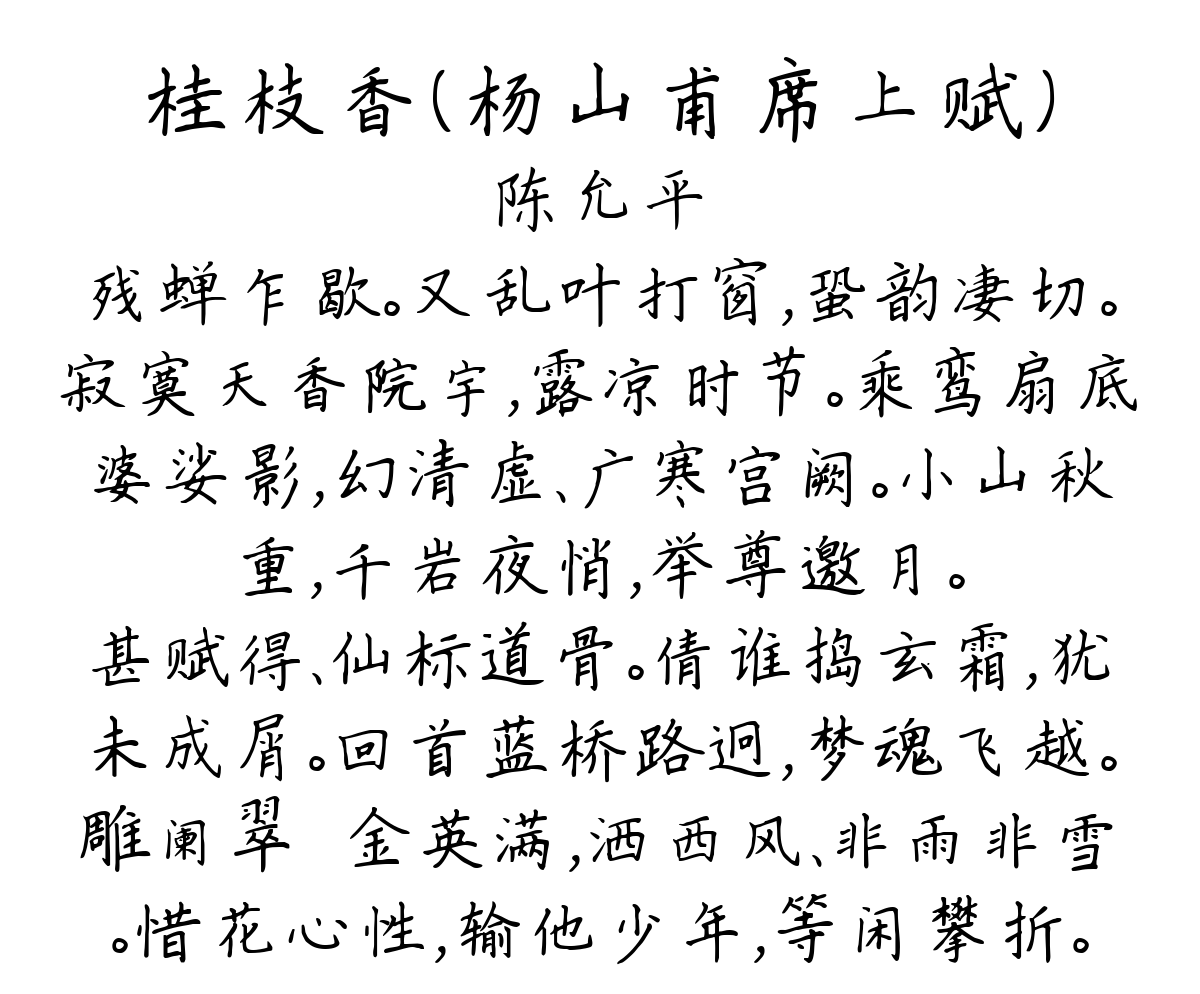 桂枝香(杨山甫席上赋)
陈允平
残蝉乍歇。又乱叶打窗,蛩韵凄切。
寂寞天香院宇,露凉时节。乘鸾扇底
婆娑影,幻清虚、广寒宫阙。小山秋
重,千岩夜悄,举尊邀月。
甚赋得、仙标道骨。倩谁捣玄霜,犹
未成屑。回首蓝桥路迥,梦魂飞越。
雕阑翠 金英满,洒西风、非雨非雪
。惜花心性,输他少年,等闲攀折。